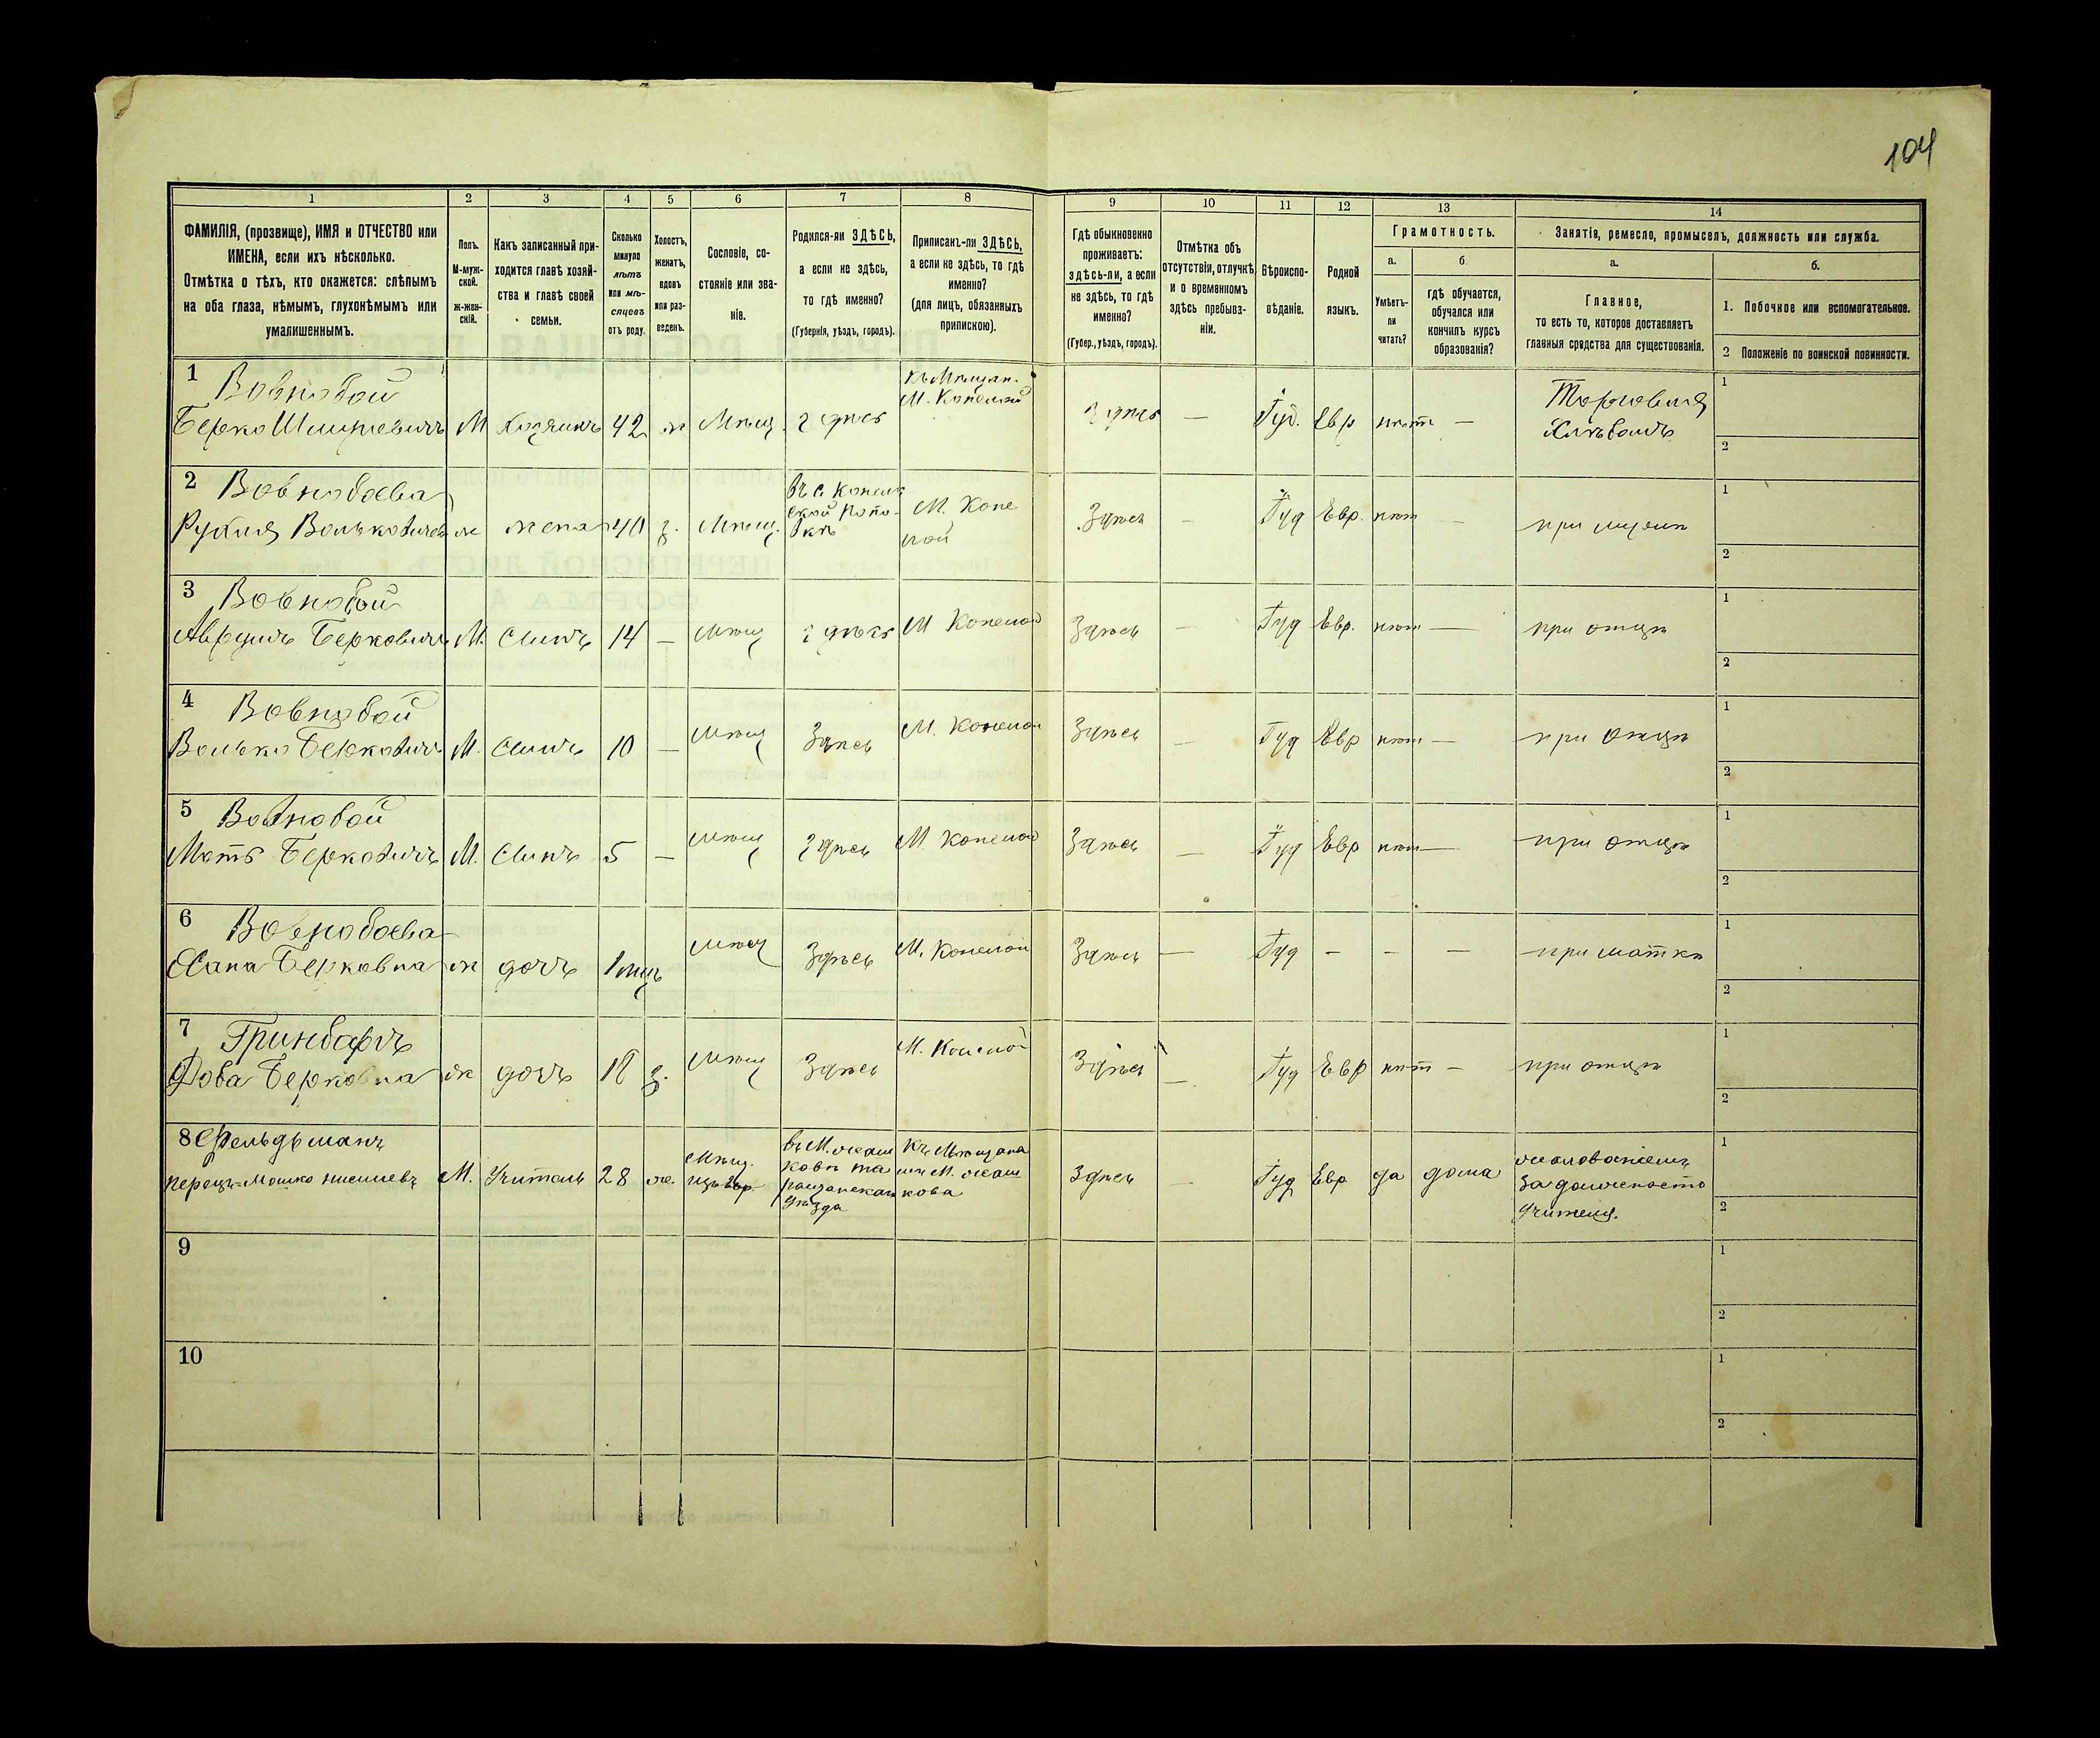 104
1
2
3
4
5
6
7
8
9
10
11
12
13
14
ФАМИЛІЯ, (прозвище), ИМЯ и ОТЧЕСТВО или
ИМЕНА, если ихъ нѣсколько.
Отмѣтка о тѣхъ, кто окажется: слѣпымъ
на оба глаза, нѣмымъ, глухонѣмымъ или
умалишеннымъ.
Полъ.
М-муж-
ской.
ж-жен-
скій.
Какъ записанный при-
ходится главѣ хозяй-
ства и главѣ своей
семьи.
Сколько
минуло
лѣтъ
или мѣ-
сяцевъ
отъ роду.
Холостъ,
женатъ,
вдовъ
или раз-
веденъ.
Сословіе, со-
стояніе или зва-
ніе.
Родился-ли ЗДѢСЬ,
а если не здѣсь,
то гдѣ именно?
(Губернія, уѣздъ, городъ).
Приписанъ-ли ЗДѢСЬ,
а если не здѣсь, то гдѣ
именно?
(для лицъ, обязанныхъ
припискою).
Гдѣ обыкновенно
проживаетъ:
здѣсь-ли, а если
не здѣсь, то гдѣ
именно?
(Губер., уѣздъ, городъ).
Отмѣтка объ
отсутствіи, отлучкѣ
и о временномъ
здѣсь пребыва-
ніи.
Вѣроиспо-
вѣданіе.
Родной
языкъ.
Грамотность.
а.
Умѣетъ-
ли
читать?
б.
гдѣ обучается,
обучался или
кончилъ курсъ
образованія?
Занятіе, ремесло, промыселъ, должность или служба.
а.
Главное,
то есть то, которое доставляетъ
главныя средства для существованія.
б.
1. Побочное или вспомогательное.
2 Положеніе по воинской повинности.
1 Вовнобой
Берко М Хозяинъ 42 ж Мѣщ. Здѣсь М. Конелой Здѣсь — Іуд. Евр нѣт — Торговля Хлѣбомъ 1 2
2 Вовнобоева
ж жена 40 з. Мѣщ. М. Коне
лой Здѣсь — Іуд Евр. нѣт — при мужѣ 1 2
3 Вовнобой
Аврумъ Берковичъ М. Сынъ 14 — мѣщ Здѣсь М Конелой Здѣсь — Іуд Евр. нѣт — при отцѣ 1 2
4 Вовнобой
Волько Берковичъ М. Сынъ 10 — мѣщ Здѣсь М. Конелой Здѣсь — Іуд Евр нѣт — при отцѣ 1 2
5 Вовнобой
Мотъ Берковичъ М. Сынъ 5 — мѣщ Здѣсь М. Конелой Здѣсь — Іуд Евр нѣт — при отцѣ 1 2
6 Вовнобоева
Хана Берковна ж дочь 1 мѣщ Здѣсь М. Конелой Здѣсь — Іуд — — — при матки 1 2
7 Гринбаргъ
Доба Берковна ж дочь 18 з. мѣщ Здѣсь М. Конелой Здѣсь — Іуд Евр нѣт — при отцѣ 1 2
8 Фельдьманъ
Перецъ-Мошко М. Учитель 28 ж. Здѣсь — Іуд Евр да дома жалованіемъ
за должность
учителя. 1 2
9 1 2
10 1 2